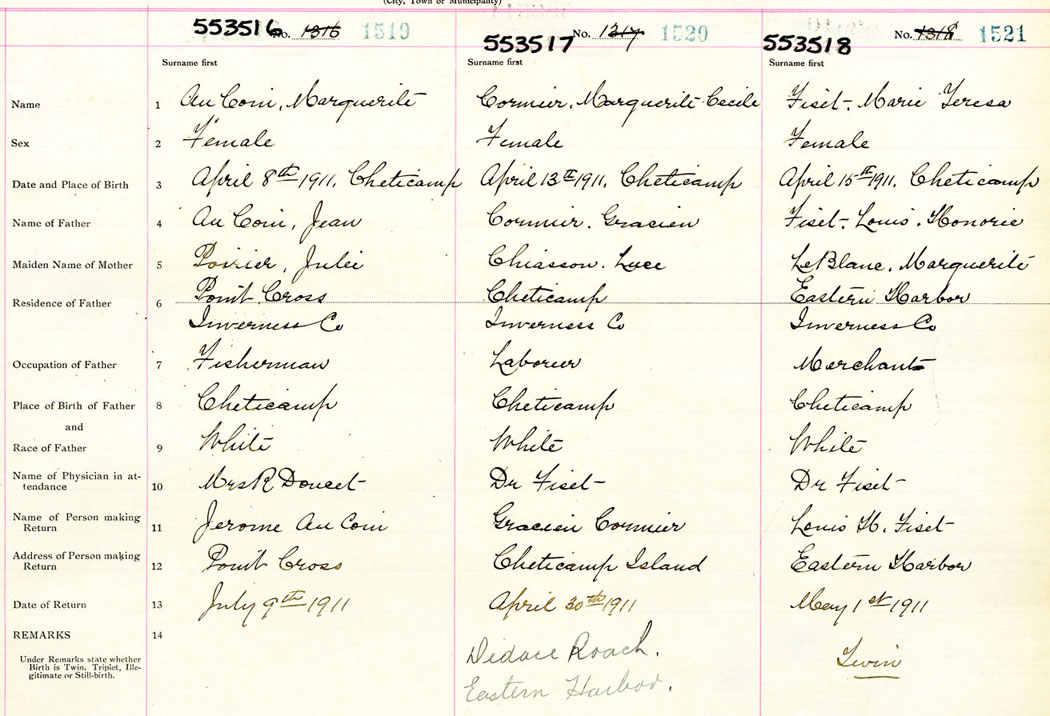 (City, Town or Municipality)
553516 No. 1316 1519
553517 No. 1317 1520
553518 No. 1318 1521
Surname first Surname first Surname first
Name 1 Au Coin, Marguerite Cormier, Marguerite Cecile Fiset, Marie Teresa
Sex 2 Female Female Female
Date and Place of Birth 3 April 8th 1911. Cheticamp April 13th 1911. Cheticamp April 15th 1911. Cheticamp
Name of Father 4 Au Coin, Jean Cormier, Gracien Fiset, Louis. Honorie
Maiden Name of Mother 5 Poirier, Julie Chiasson, Luce LeBlanc, Marguerite
Residence of Father 6 Point Cross Cheticamp Eastern Harbor
Inverness Co Inverness Co Inverness Co
Occupation of Father 7 Fisherman Laborier Merchant
Place of Birth of Father 8 Cheticamp Cheticamp Cheticamp
and
Race of Father 9 White White White
Name of Physician in at-
tendance 10 Mrs R Doucet Dr Fiset Dr Fiset
Name of Person making
Return 11 Jerome Au Coin Gracien Cormier Louis H. Fiset
Address of Person making
Return 12 Point Cross Cheticamp Island Eastern Harbor
Date of Return 13 July 9th 1911 April 30th 1911 May 1st 1911
REMARKS 14
Under Remarks state whether
Birth is Twin, Triplet, Ille-
gitimate or Still-birth.
Didace Roach.
Eastern Harbor.
Twin